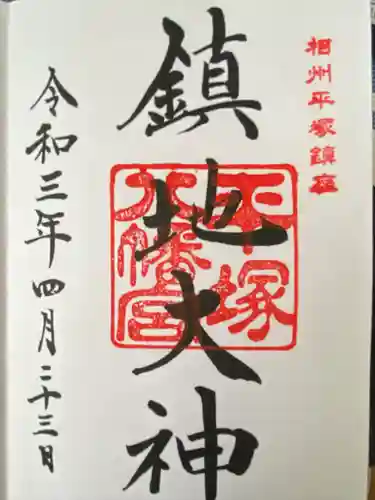 相州平塚鎮座
鎮地大神
平塚
八幡宮
令和三年四月二十三日